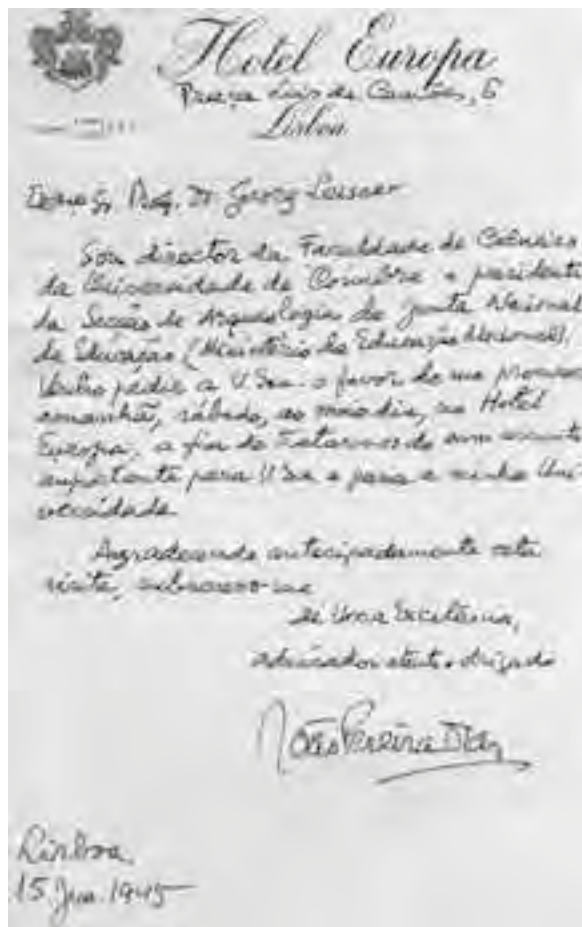 Hotel Europa
Praça Luis de Camões, 6
Lisboa
Prof. Dr. Georg
Sou director da Faculdade de Ciências
da Universidade de Coimbra e presidente
da Secção de Arqueologia da Junta Nacional
de Educação (Ministério da Educação Nacional).
Venho pedir a V. Exa. o favor de me procurar
amanhã, sábado, ao meio dia, no Hotel
Europa, a fim de tratarmos de um assunto
importante para V. Exa e para a minha Uni-
versidade
Agradecendo antecipadamente esta
visita, subscrevo-me
de Vossa Excelência,
admirador atento e obrigado
João Pereira Dias
Lisboa,
15 1945